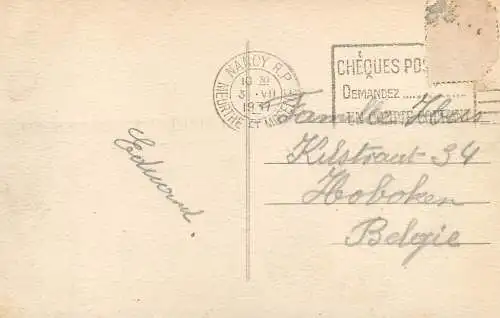 Edward.
NANCY R.P.
10 30
3 VII
1937
MEURTHE-ET-MOSELLE
CHÈQUES POS
DEMANDEZ............
UN COMPTE COURANT
Familie
Kilstraat 34
Hoboken
Belgie